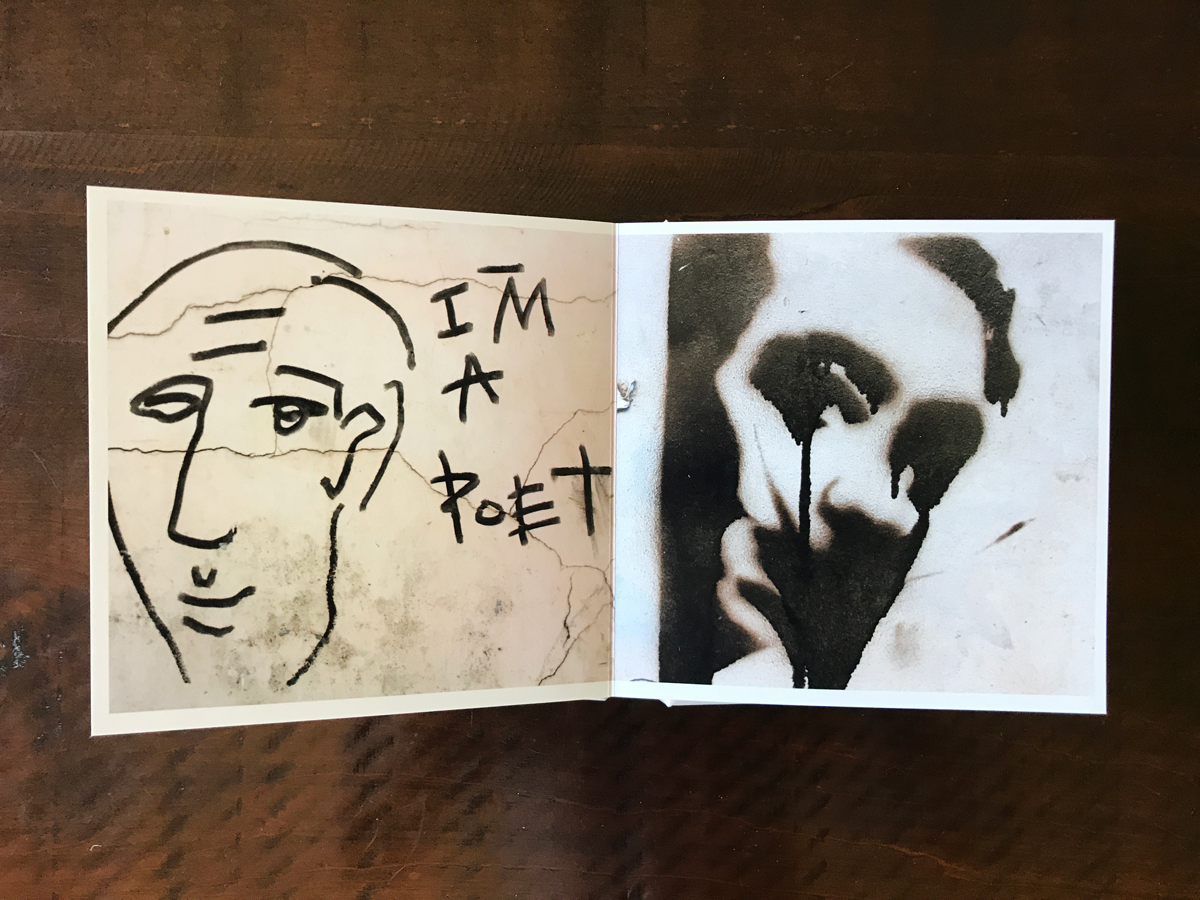 I'M
A
POET